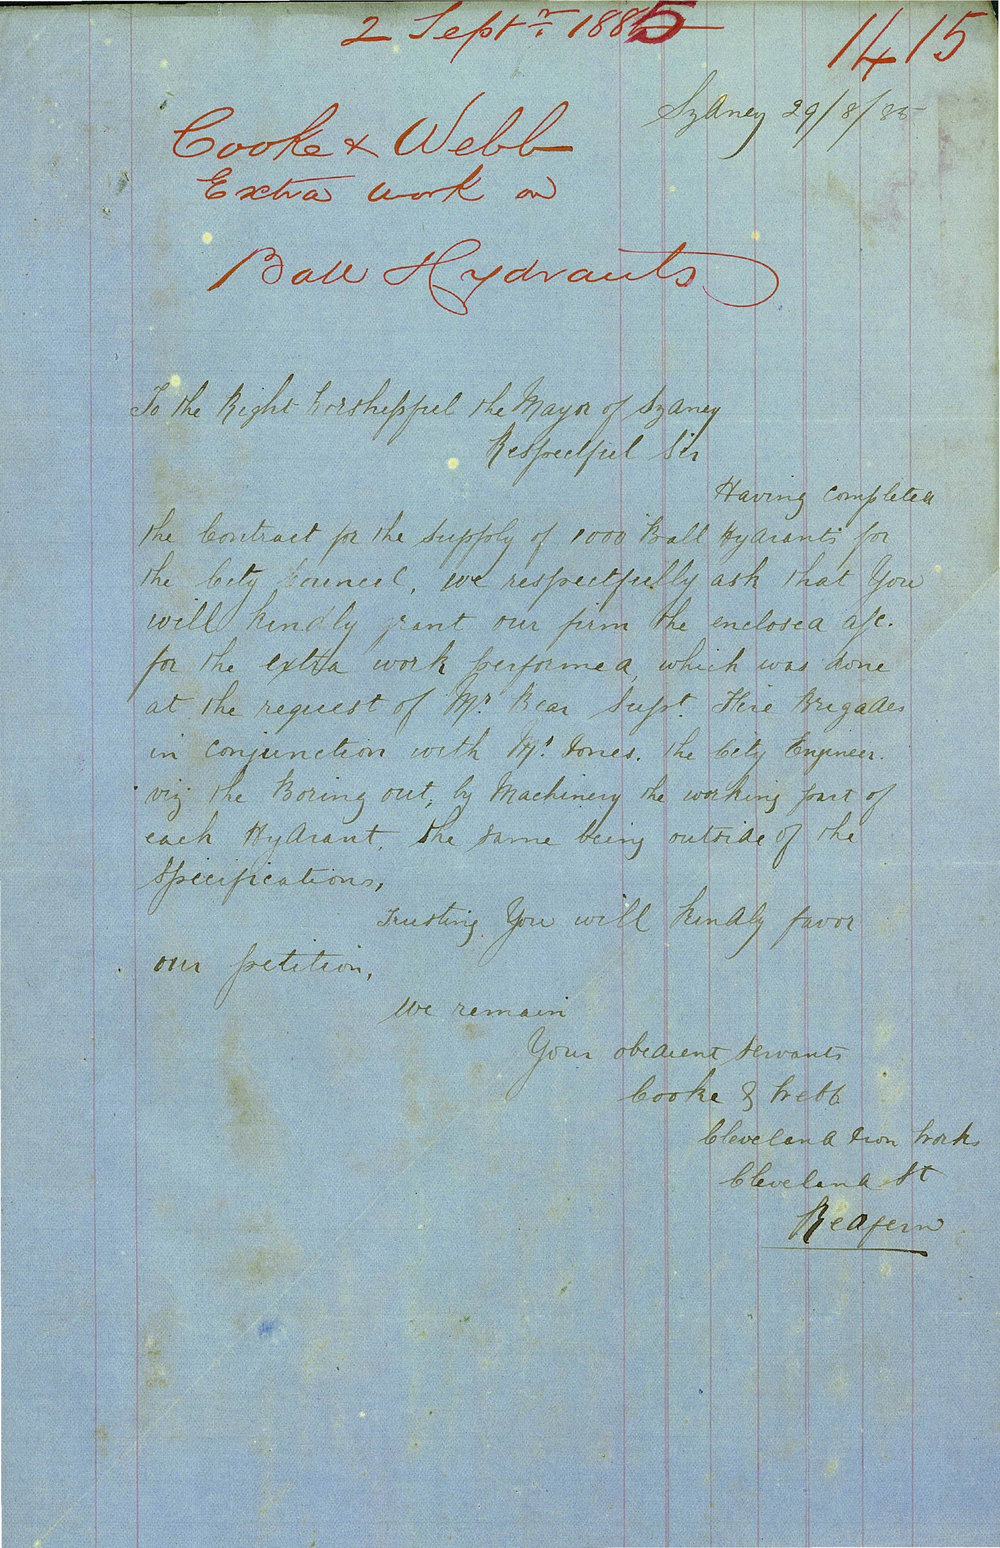 2 Septr. 1885
1415
Sydney 29/8/85
Cooke & Webb
Extra work on
Ball Hydrants
To the Right Worshepful the Mayor of Sydney
Respectful Sir
Having completed
the Contract for the Supply of 1000 Ball Hydrants for
the City Council, we respectfully ask that You
will kindly grant our firm the enclosed a/c.
for the extra work performed, which was done
at the request of Mr. Bear Supt. Fire Brigades
in conjunction with Mr. Jones. the City Engineer.
viz the Boring out, by Machinery the working part of
each Hydrant, the same being outside of the
Specifications,
Trusting You will kindly favor
our petition,
We remain
Your obedient servants
Cooke & Webb
Cleveland Iron Works
Cleveland St
Redfern